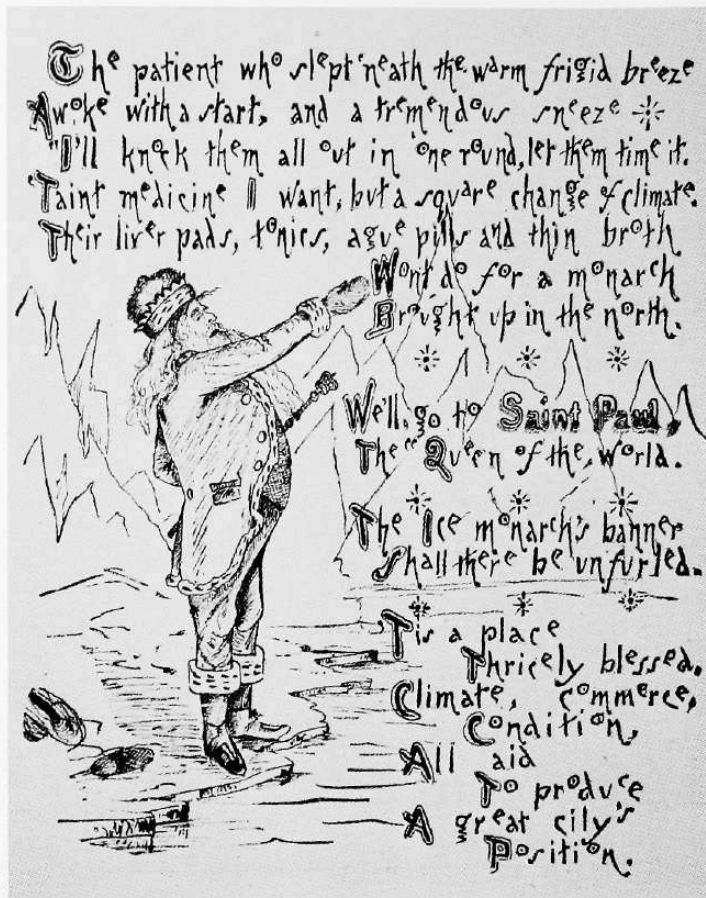 The patient who slept 'neath the warm frigid breeze
Awoke with a start, and a tremendous sneeze
"I'll knock them all out in one round, let them time it.
'Taint medicine I want, but a square change of climate.
Their liver pads, tonics, ague pills and thin broth
Wont do for a monarch
Brought up in the north.
We'll go to Saint Paul,
The "Queen of the world.
The Ice monarch's banner
Shall there be unfurled.
'Tis a place
Thricely blessed.
Climate, commerce,
Condition,
All aid
To produce
A great city's
Position.